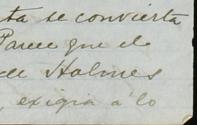 ta se convierta
Parece que el
de Holmes
, exigia á lo